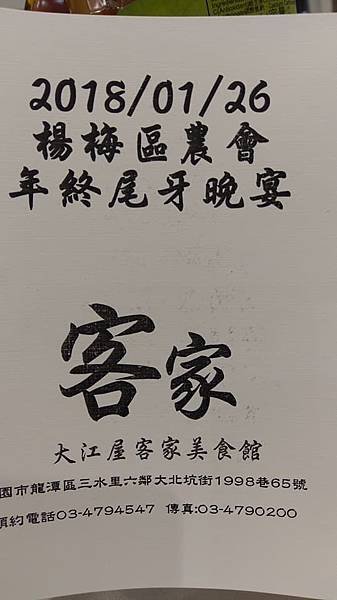 2018/01/26
楊梅區農會
年終尾牙晚宴
客家
大江屋客家美食館
園市龍潭區三水里六鄰大北坑街1998巷65號
預約電話03-4794547 傳真:03-4790200